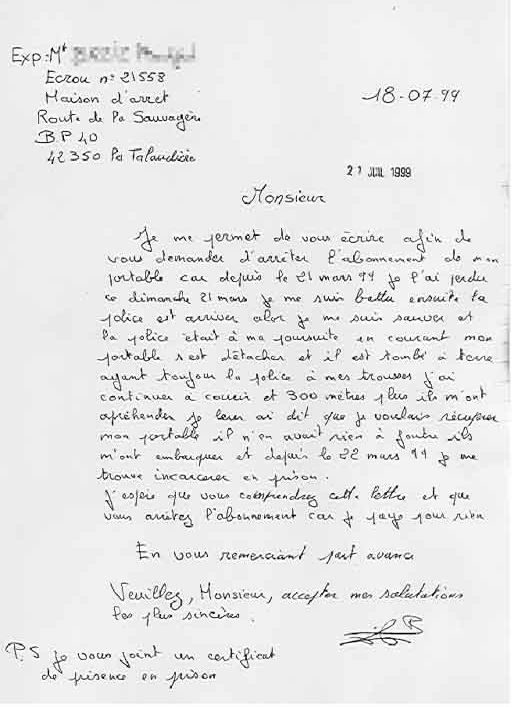 Exp: Mt
Ecrou n° 21558
Maison d'arret
Route de la Sauvagère
B.P 40
42350 la Talaudière
18-07-99
21 JUIL 1999
Monsieur
Je me permet de vous écrire afin de
vous demander d'arrêter l'abonnement de mon
portable car depuis le 21 mars 99 je l'ai perdu
ce dimanche 21 mars je me suis battu ensuite la
police est arriver alor je me suis sauver et
la police était à ma poursuite en courant mon
portable s'est détacher et il est tombé à terre
ayant toujour la police à mes trousses j'ai
continuer à courir et 300 mètres plus ils m'ont
apréhender je leur ai dit que je voulais récuperer
mon portable il n'en avait rien à foutre ils
m'ont embarquer et depuis le 22 mars 99 je me
trouve incarcerer en prison.
J'espère que vous comprendrez cette lettre et que
vous arretez l'abonnement car je paye pour rien
En vous remerciant part avance
Veuillez, Monsieur, accepter mes salutations
les plus sincères.
P.S je vous joint un certificat
de présence en prison